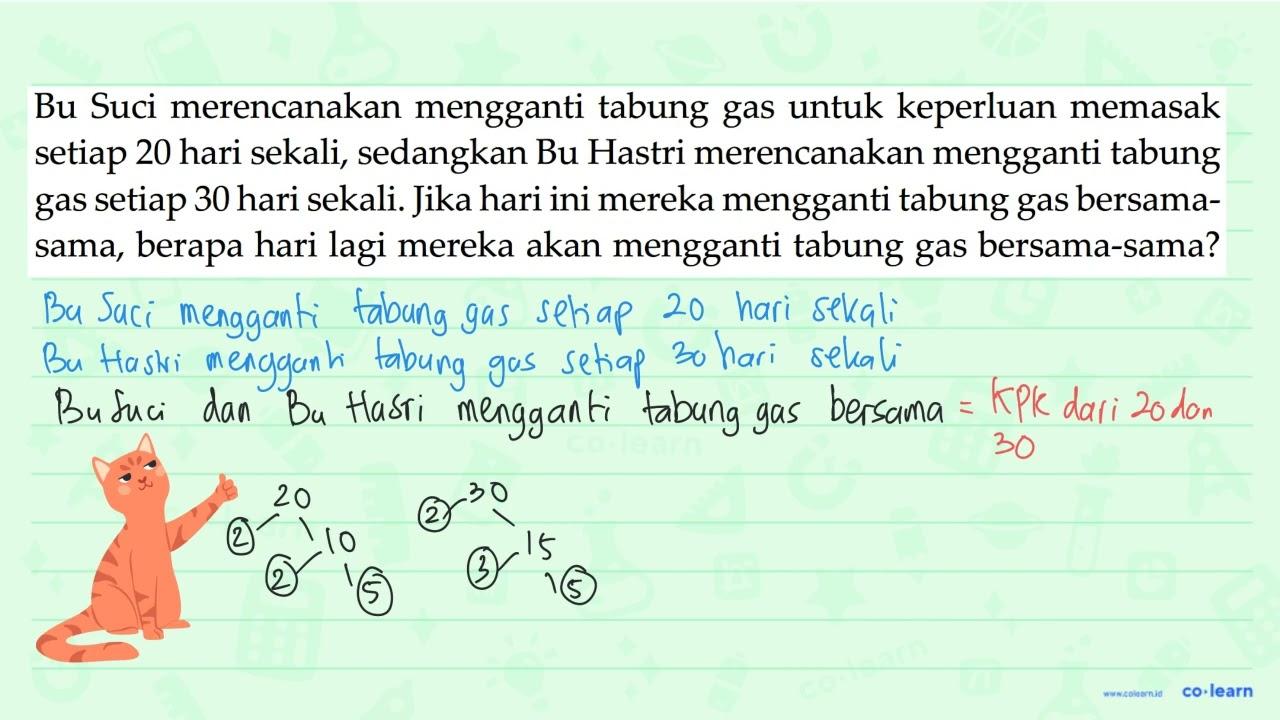 Bu Suci merencanakan mengganti tabung gas untuk keperluan memasak
setiap 20 hari sekali, sedangkan Bu Hastri merencanakan mengganti tabung
gas setiap 30 hari sekali. Jika hari ini mereka mengganti tabung gas bersama-
sama, berapa hari lagi mereka akan mengganti tabung gas bersama-sama?
Bu Suci mengganti tabung gas setiap 20 hari sekali
Bu Hastri mengganti tabung gas setiap 30 hari sekali
Bu Suci dan Bu Hastri mengganti tabung gas bersama = KPK dari 20 dan
30
20 30
2 10 2 15
2 5 3 5
co·learn
co·learn
www.colearn.id co·learn